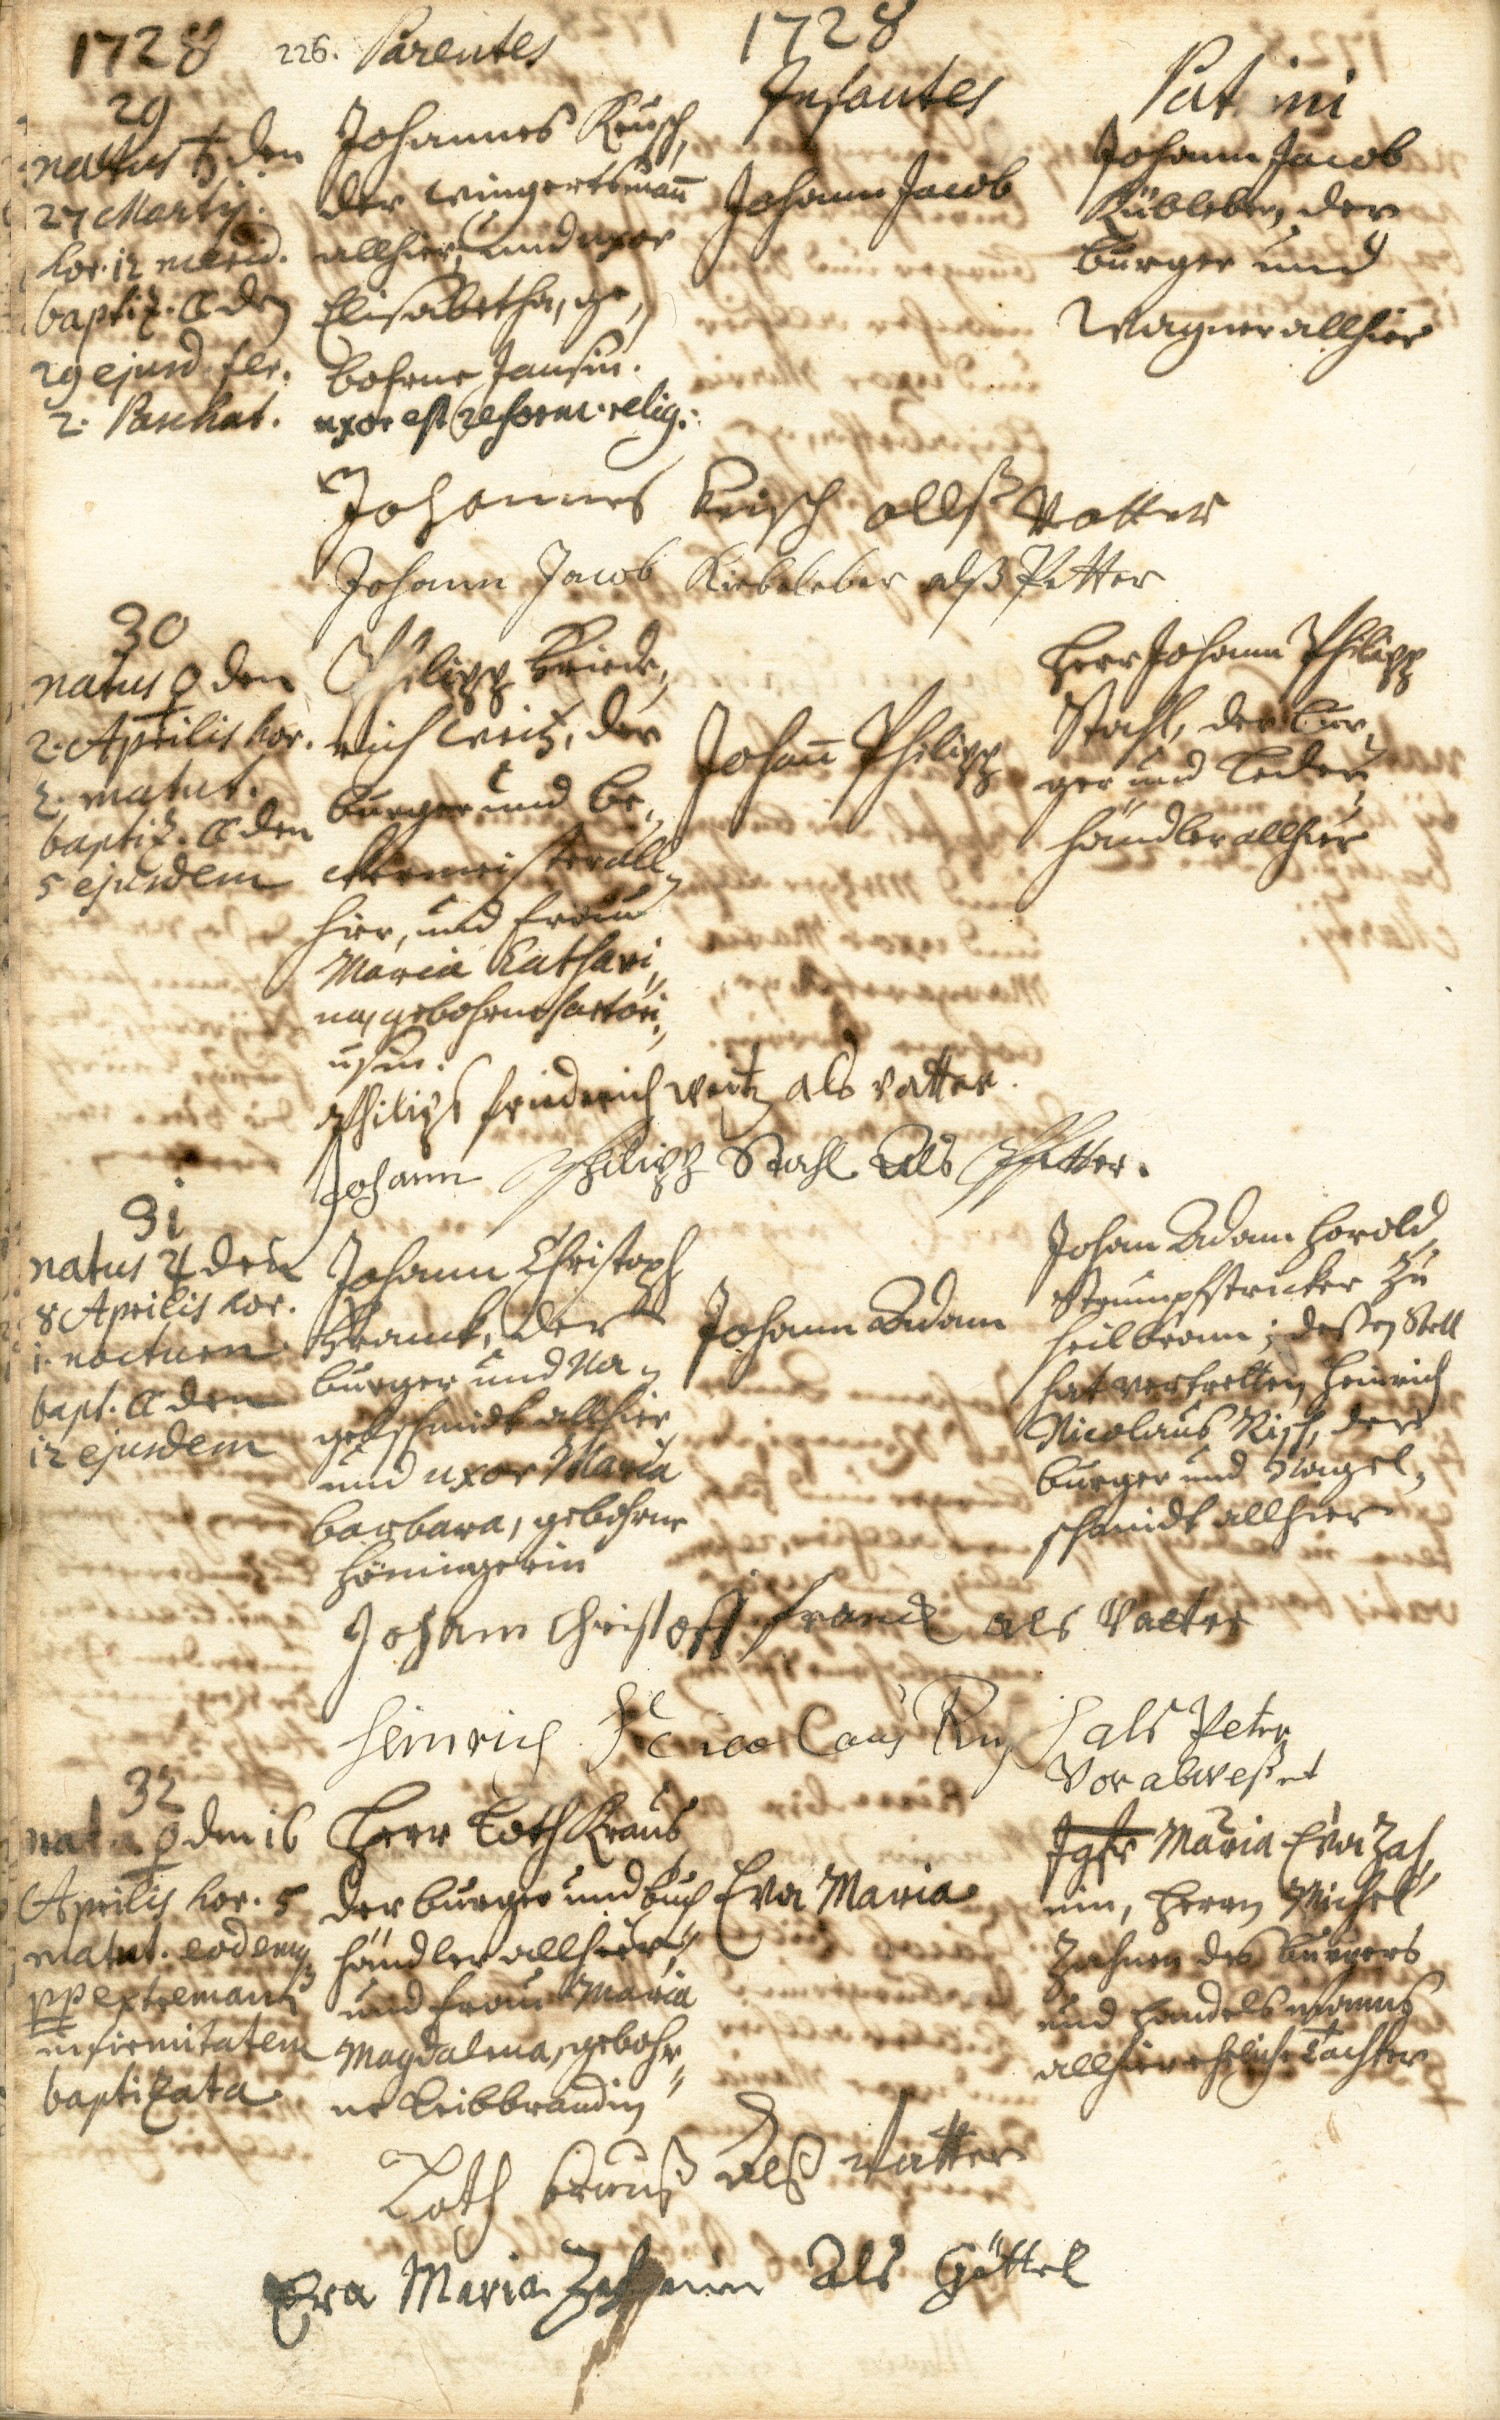 1728 226. Parentes 1728
Infantes Patrini
29
natus ♄ den
27 Martij.
hor. 12 merid.
baptiz. ☾ den
29 ejusd. fer.
2. Paschat.
Johannes Keusch,
der wingertsmañ
allhier, und uxor
Elisabetha, ge„
bohrne Jansin.
uxor est reform. relig:
Johann Jacob
Johann Jacob
Kübleber, der
burger und
Wagner allhier
Johannes Keisch allß Vatter
Johann Jacob Kiebeleber alß Petter
30
natus ♀ den
2. Aprilis hor.
2. matut.
baptiz. ☾ den
5 ejusdem
Philipp Friede„
rich Weitz, der
burger und be„
ckermeister all„
hier, und Frau
Maria Cathari„
na, gebohrne Sartori„
usin.
Johañ Philipp
Herr Johann Philipp
Stahl, der bur„
ger und Leder„
händler allhier
Philips friederich weitz als vatter.
Johann Philipp Stahl Als Pfetter.
31
natus ♃ den
8 Aprilis hor.
1. nocturn
bapt. ☾ den
12 ejusdem
Johann Christoph
Franck, der
burger und Na„
gelschmidt allhier
und uxor Maria
barbara, gebohrne
Höningerin
Johann Adam
Johan Adam Herold
Strumpfstricker zu
Heilbronn; deßen Stell
hat vertretten Heinrich
Nicolaus Risch, der
burger und Nagel„
schmidt allhier
Johann Christoff franck als Vatter
Heinrich Nicolaus Risch als Peter
Vor abweßet
32
nata ♀ den 16
Aprilis hor. 5
matut. eodemq
pp extremam
infirmitatem
baptizata
Herr Loth Kraus
der burger und buch
händler allhier,
und Frau Maria
Magdalena, gebohr„
ne Leibbrandin
Eva Maria
Jgfr Maria Eva Zah„
nin, Herrn Michel
Zahnen des burgers
und Handelsmanns
allhier eheliche Tochter
Loth Krauß Alß Vatter
Eva Maria Zahnin Als Göttel